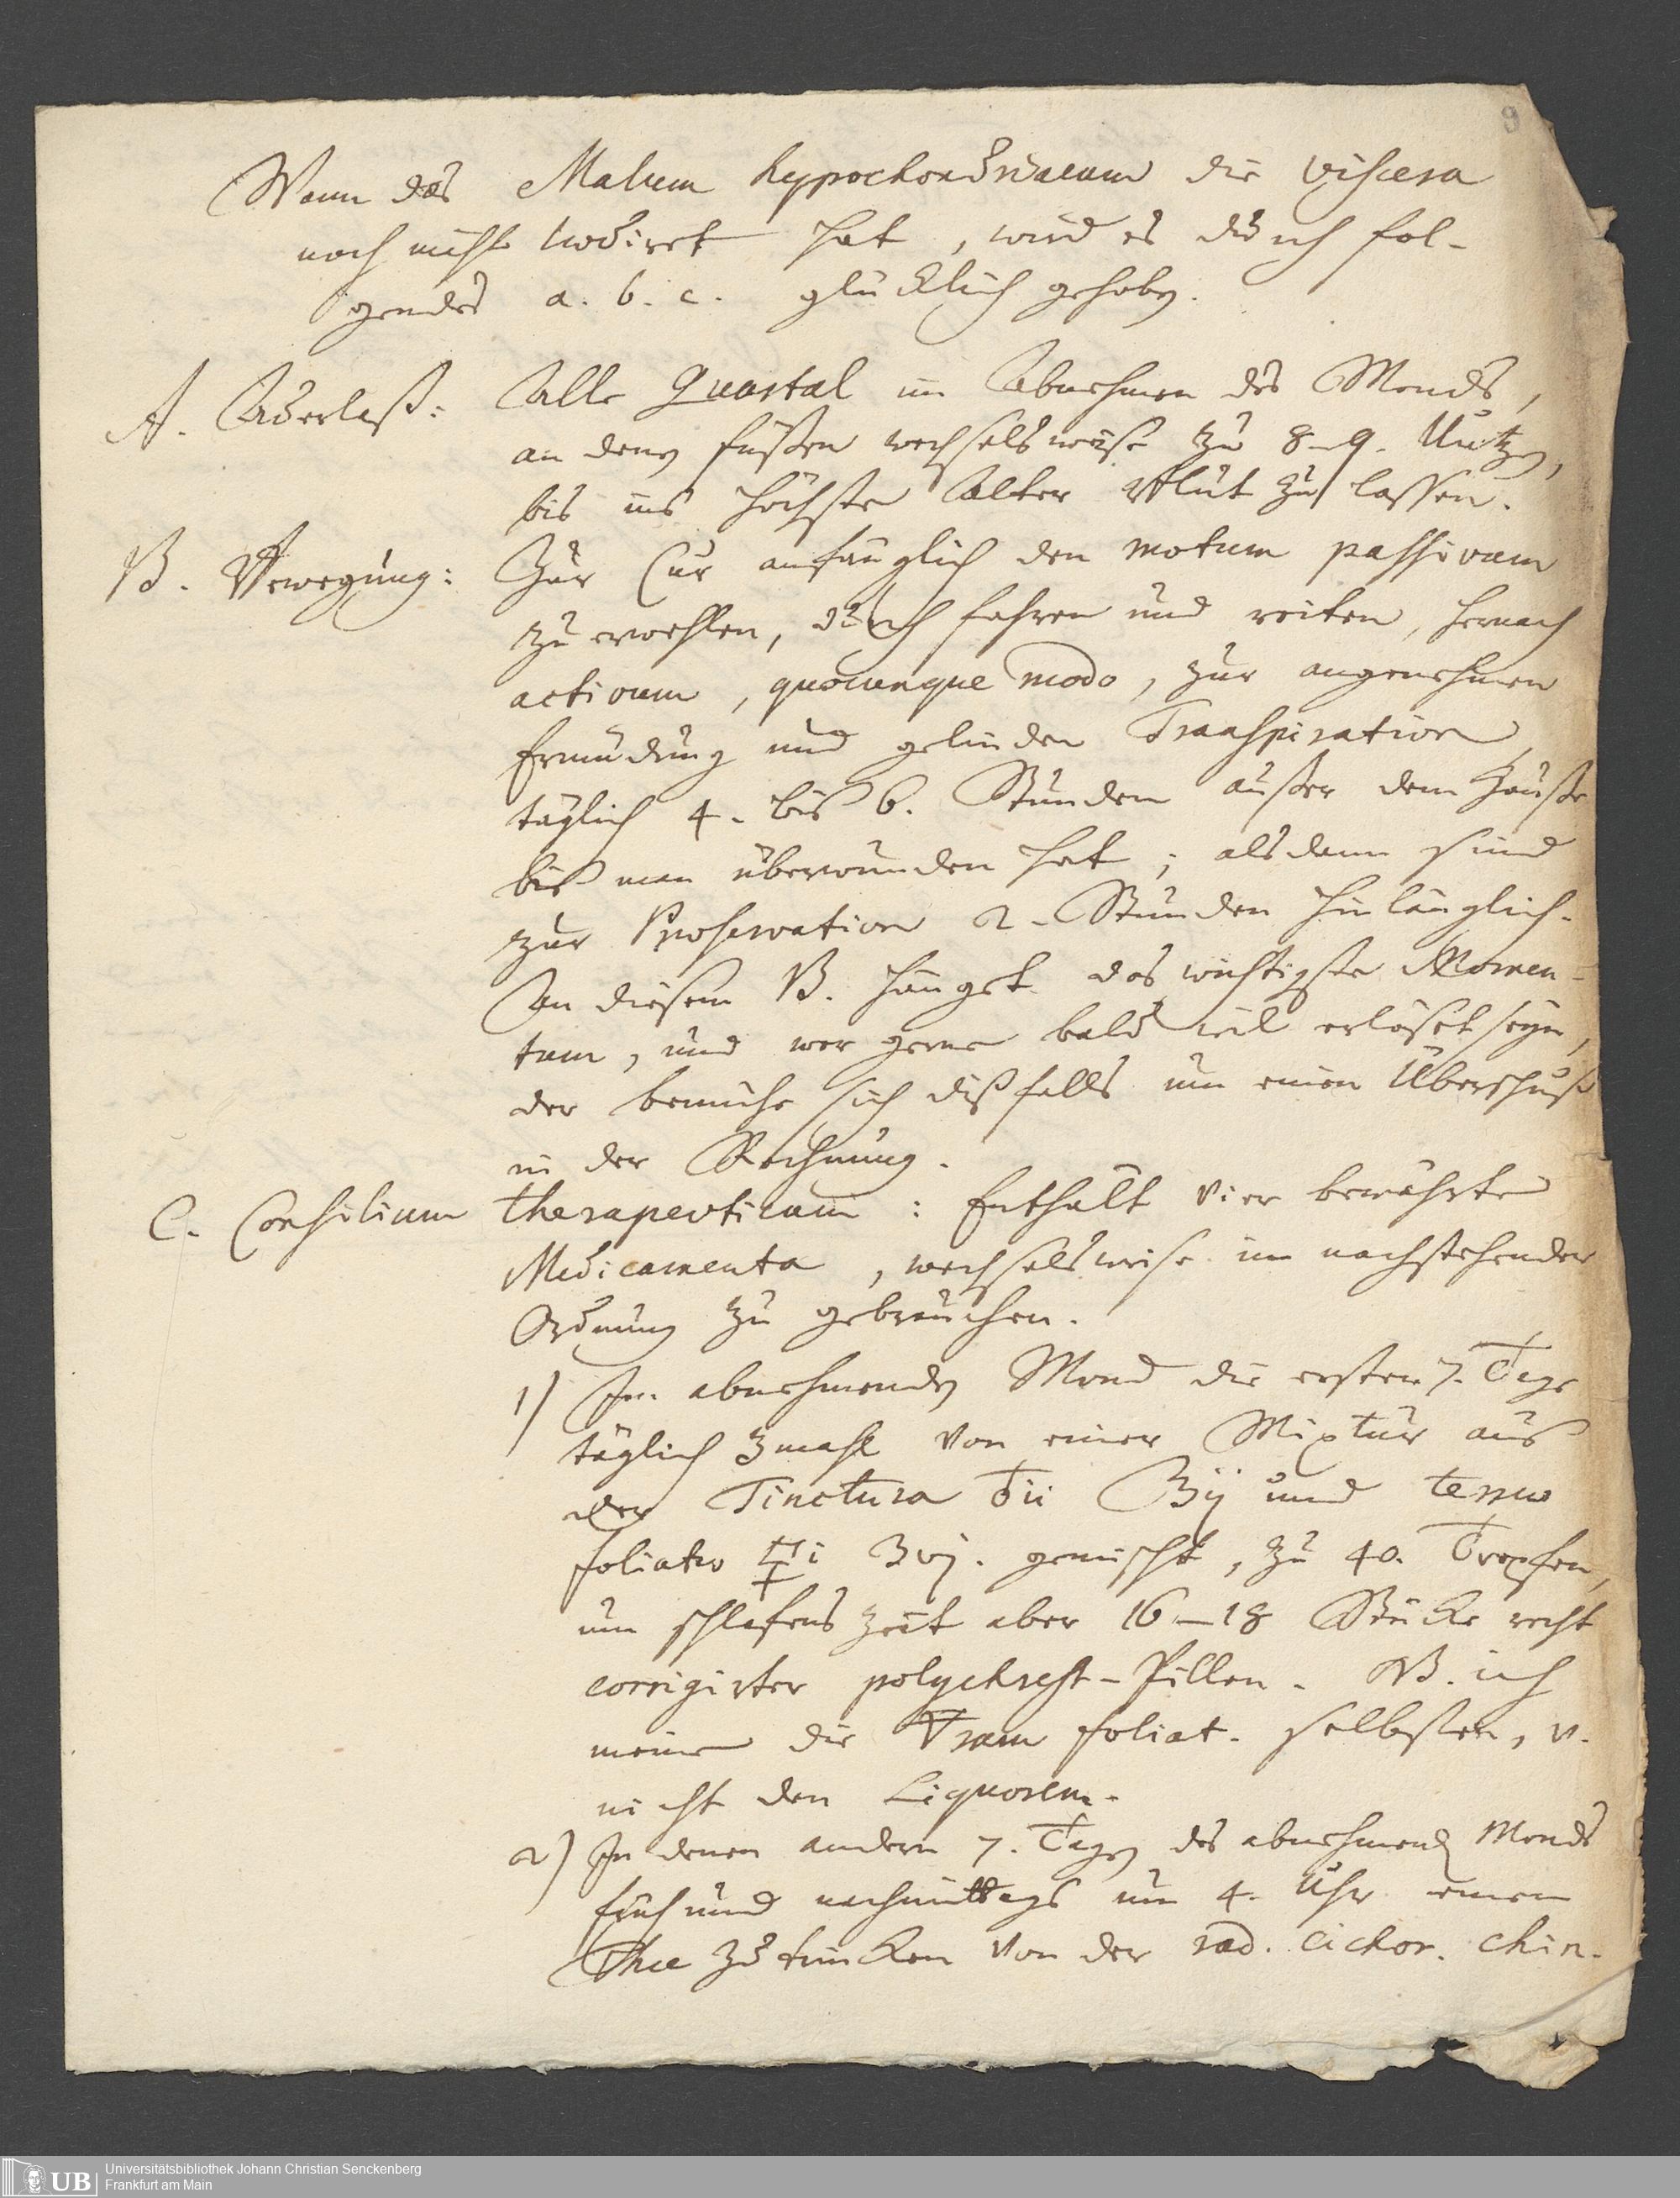 9
Wann das Malum hypochondriacum die viscera
noch nicht laedirt hat, wird es durch fol-
gendes a. b. c. glücklich gehoben.
A. Aderlaß: Alle Quartal im Abnehmen des Monds,
an denen füßen wechselsweise zu 8-9. Untzen,
bis ins höchste Alter Blut zu lassen.
B. Bewegung: Zur Cur anfänglich den motum passivum
zu erwehlen, durch fahren und reiten, hernach
activum, quocunque modo, zur angenehmen
Ermüdung und gelinden Transpiration,
täglich 4. bis 6. Stunden außer dem Hauße
biß man überwunden hat; alsdann sind
zur Praeservation 2. Stunden hinlänglich.
An diesem B. hänget das wichtigste Momen-
tum, und wer gerne bald will erlöset seyn,
der bemühe sich dißfalls um einen Überschuß
in der Rechnung.
C. Consilium therapevticum: Enthält vier bewährte
Medicamenta, wechselsweise in nachstehender
Ordnung zu gebrauchen.
1) Im abnehmenden Mond die ersten 7. Tage
täglich 3mahl von einer Mixtur aus
der Tinctura ʒij und terra
foliata ʒvj. gemischt, zu 40. Tropfen,
um schlafens Zeit aber 16-18 Stücke recht
corrigirter polychrest-Pillen. NB. ich
meine die Tram foliat. selbsten, u.
nicht den Liquorem.
2) In denen andern 7. Tagen des abnehmend Monds
früh und nachmittags um 4. Uhr einen
Thee zu trincken von der rad. cichor. chin.
UB Universitätsbibliothek Johann Christian Senckenberg
Frankfurt am Main